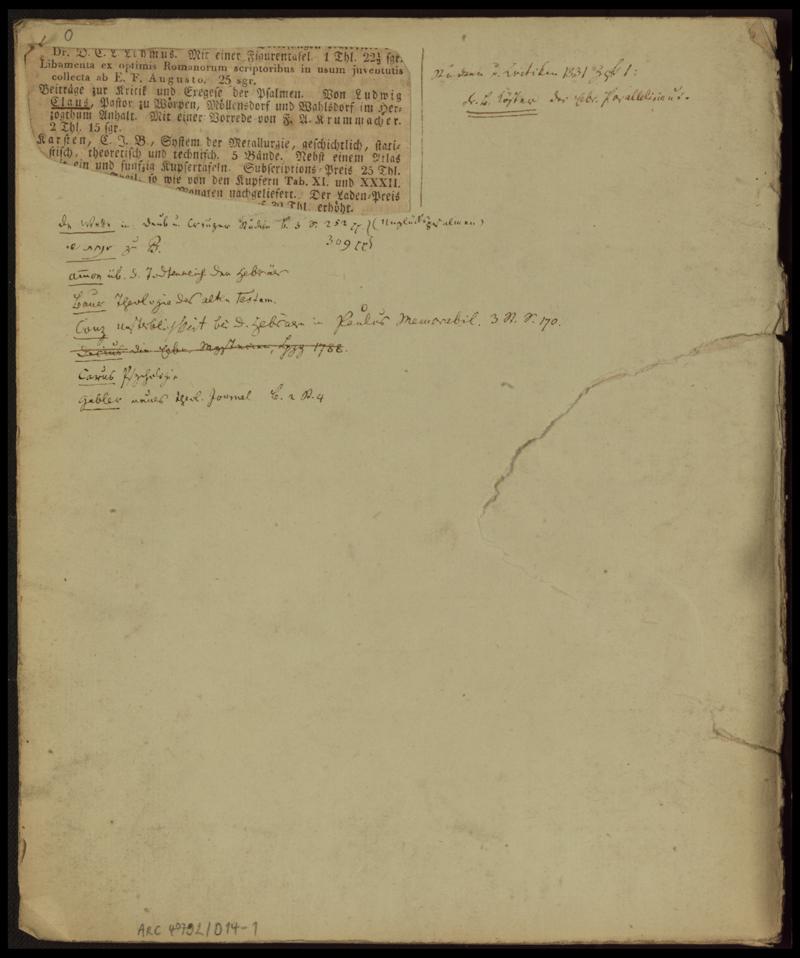 0
Dr. D. E. L. Mit einer Figurentafel. 1 Thl. 22½ sgr.
Libamenta ex optimis Romanorum scriptoribus in usum juventutis
collecta ab E. F. Augusto. 25 sgr.
Beiträge zur Kritik und Exegese der Psalmen. Von Ludwig
Claus, Pastor zu Wörpen, Möllensdorf und Wahlsdorf im Her-
zogthum Anhalt. Mit einer Vorrede von F. A. Krummacher.
2 Thl. 15 sgr.
Karsten, C. J. B., System der Metallurgie, geschichtlich, stati-
stisch, theoretisch und technisch. 5 Bände. Nebst einem Atlas
ein und funfzig Kupfertafeln. Subscriptions-Preis 25 Thl.
so wie von den Kupfern Tab. XI. und XXXII.
nachgeliefert. Der Laden-Preis
Thl. erhöht.
Studien u. Kritiken 1831 1:
Köster der hebr. Parallelismus.
De Wette in Daub u. Creuzer Studien B. 3 S. 252 ff (Unglückspsalmen)
309 ff
zu B.
Ammon üb. d. Todtenreich der Hebräer
Bauer Theologie des alten Testam.
Conz Unsterblichkeit bei d. Hebräern in Paulus Memorabil. 3 St. S. 170.
die 1788.
Carus Psychologie
Gabler neues theol. Journal B. 2 St. 4
ARC 4° 792/D14-1